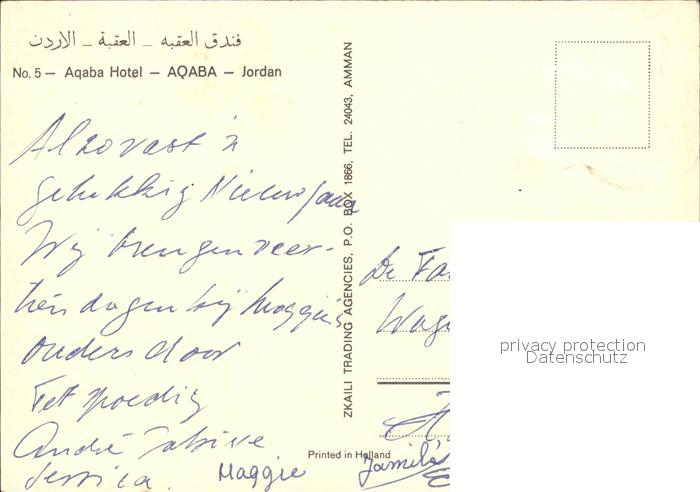 فندق العقبه – العقبة – الاردن
No. 5 – Aqaba Hotel – AQABA – Jordan
Alzovast 'n
gelukkig Nieuwjaar
Wij brengen veer-
tien dagen bij Maggie's
ouders door
Tot spoedig
André Sabine
Jessica. Maggie Jamila
ZKAILI TRADING AGENCIES, P.O. BOX 1866, TEL. 24043, AMMAN
De Fa
Wag
Printed in Holland
privacy protection
Datenschutz